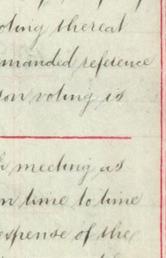 oting thereat
manded reference
son voting is
h meeting as
m time to time
expense of the